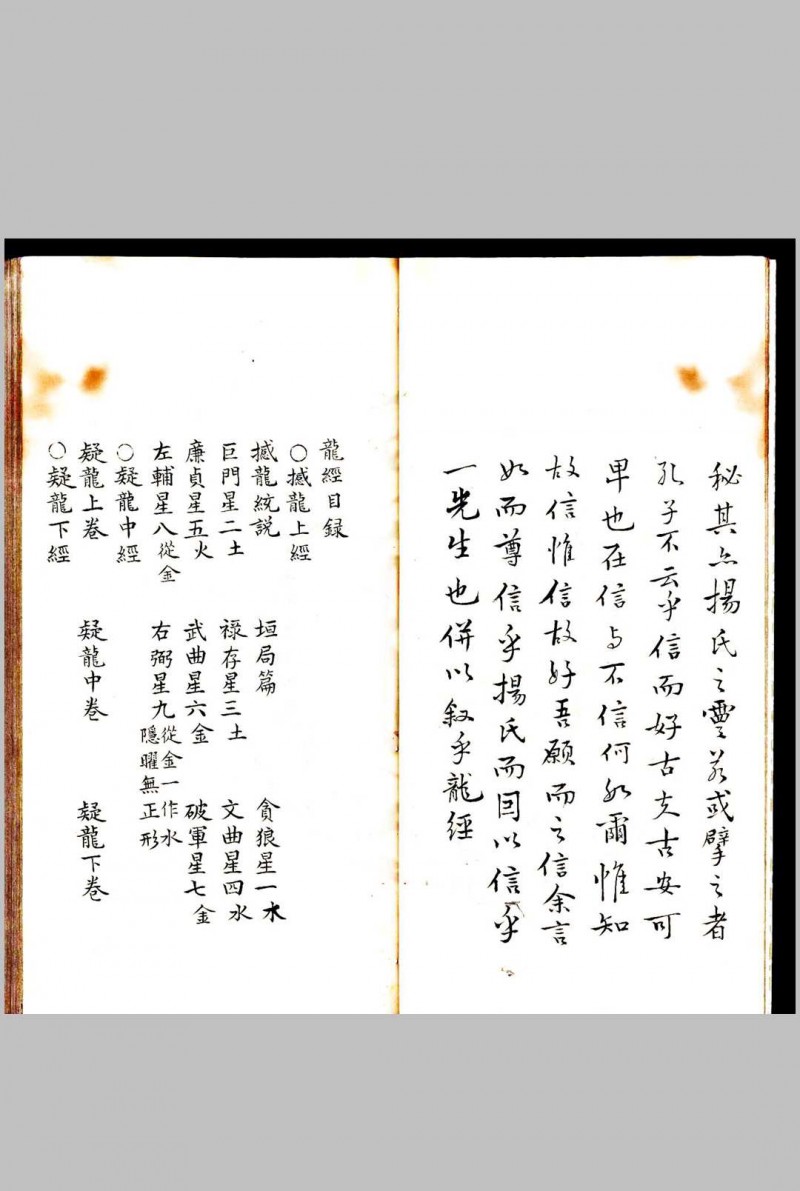 秘其亦揚氏之靈若或擘之者
孔子不云乎信而好古夫古安可
也在信与不信何如爾惟知
故信惟信故好吾願而之信余言
如而尊信乎揚氏而因以信乎
一先生也併以叙乎龍經
龍經目録
○撼龍上經
撼龍統説 垣局篇 貪狼星一木
巨門星二土 祿存星三土 文曲星四水
廉貞星五火 武曲星六金 破軍星七金
左輔星八從金 右弼星九從金一作水隱曜無正形
○疑龍中經
疑龍上卷 疑龍中卷 疑龍下卷
○疑龍下經